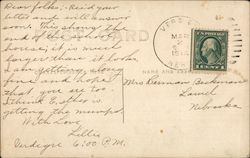 Dear folks:- Rec'd your
letter and will answer
soon this shows the
end of the school
house; it is much
larger than it looks.
am getting along
fine and hoping
that you are too.
I think Esther is
getting the mumps
With Love
Lillie
Verdigre 6:00 P.M.
VERD
MAR
NEB
NAME AND
Mrs Herman
Laurel
Nebraska